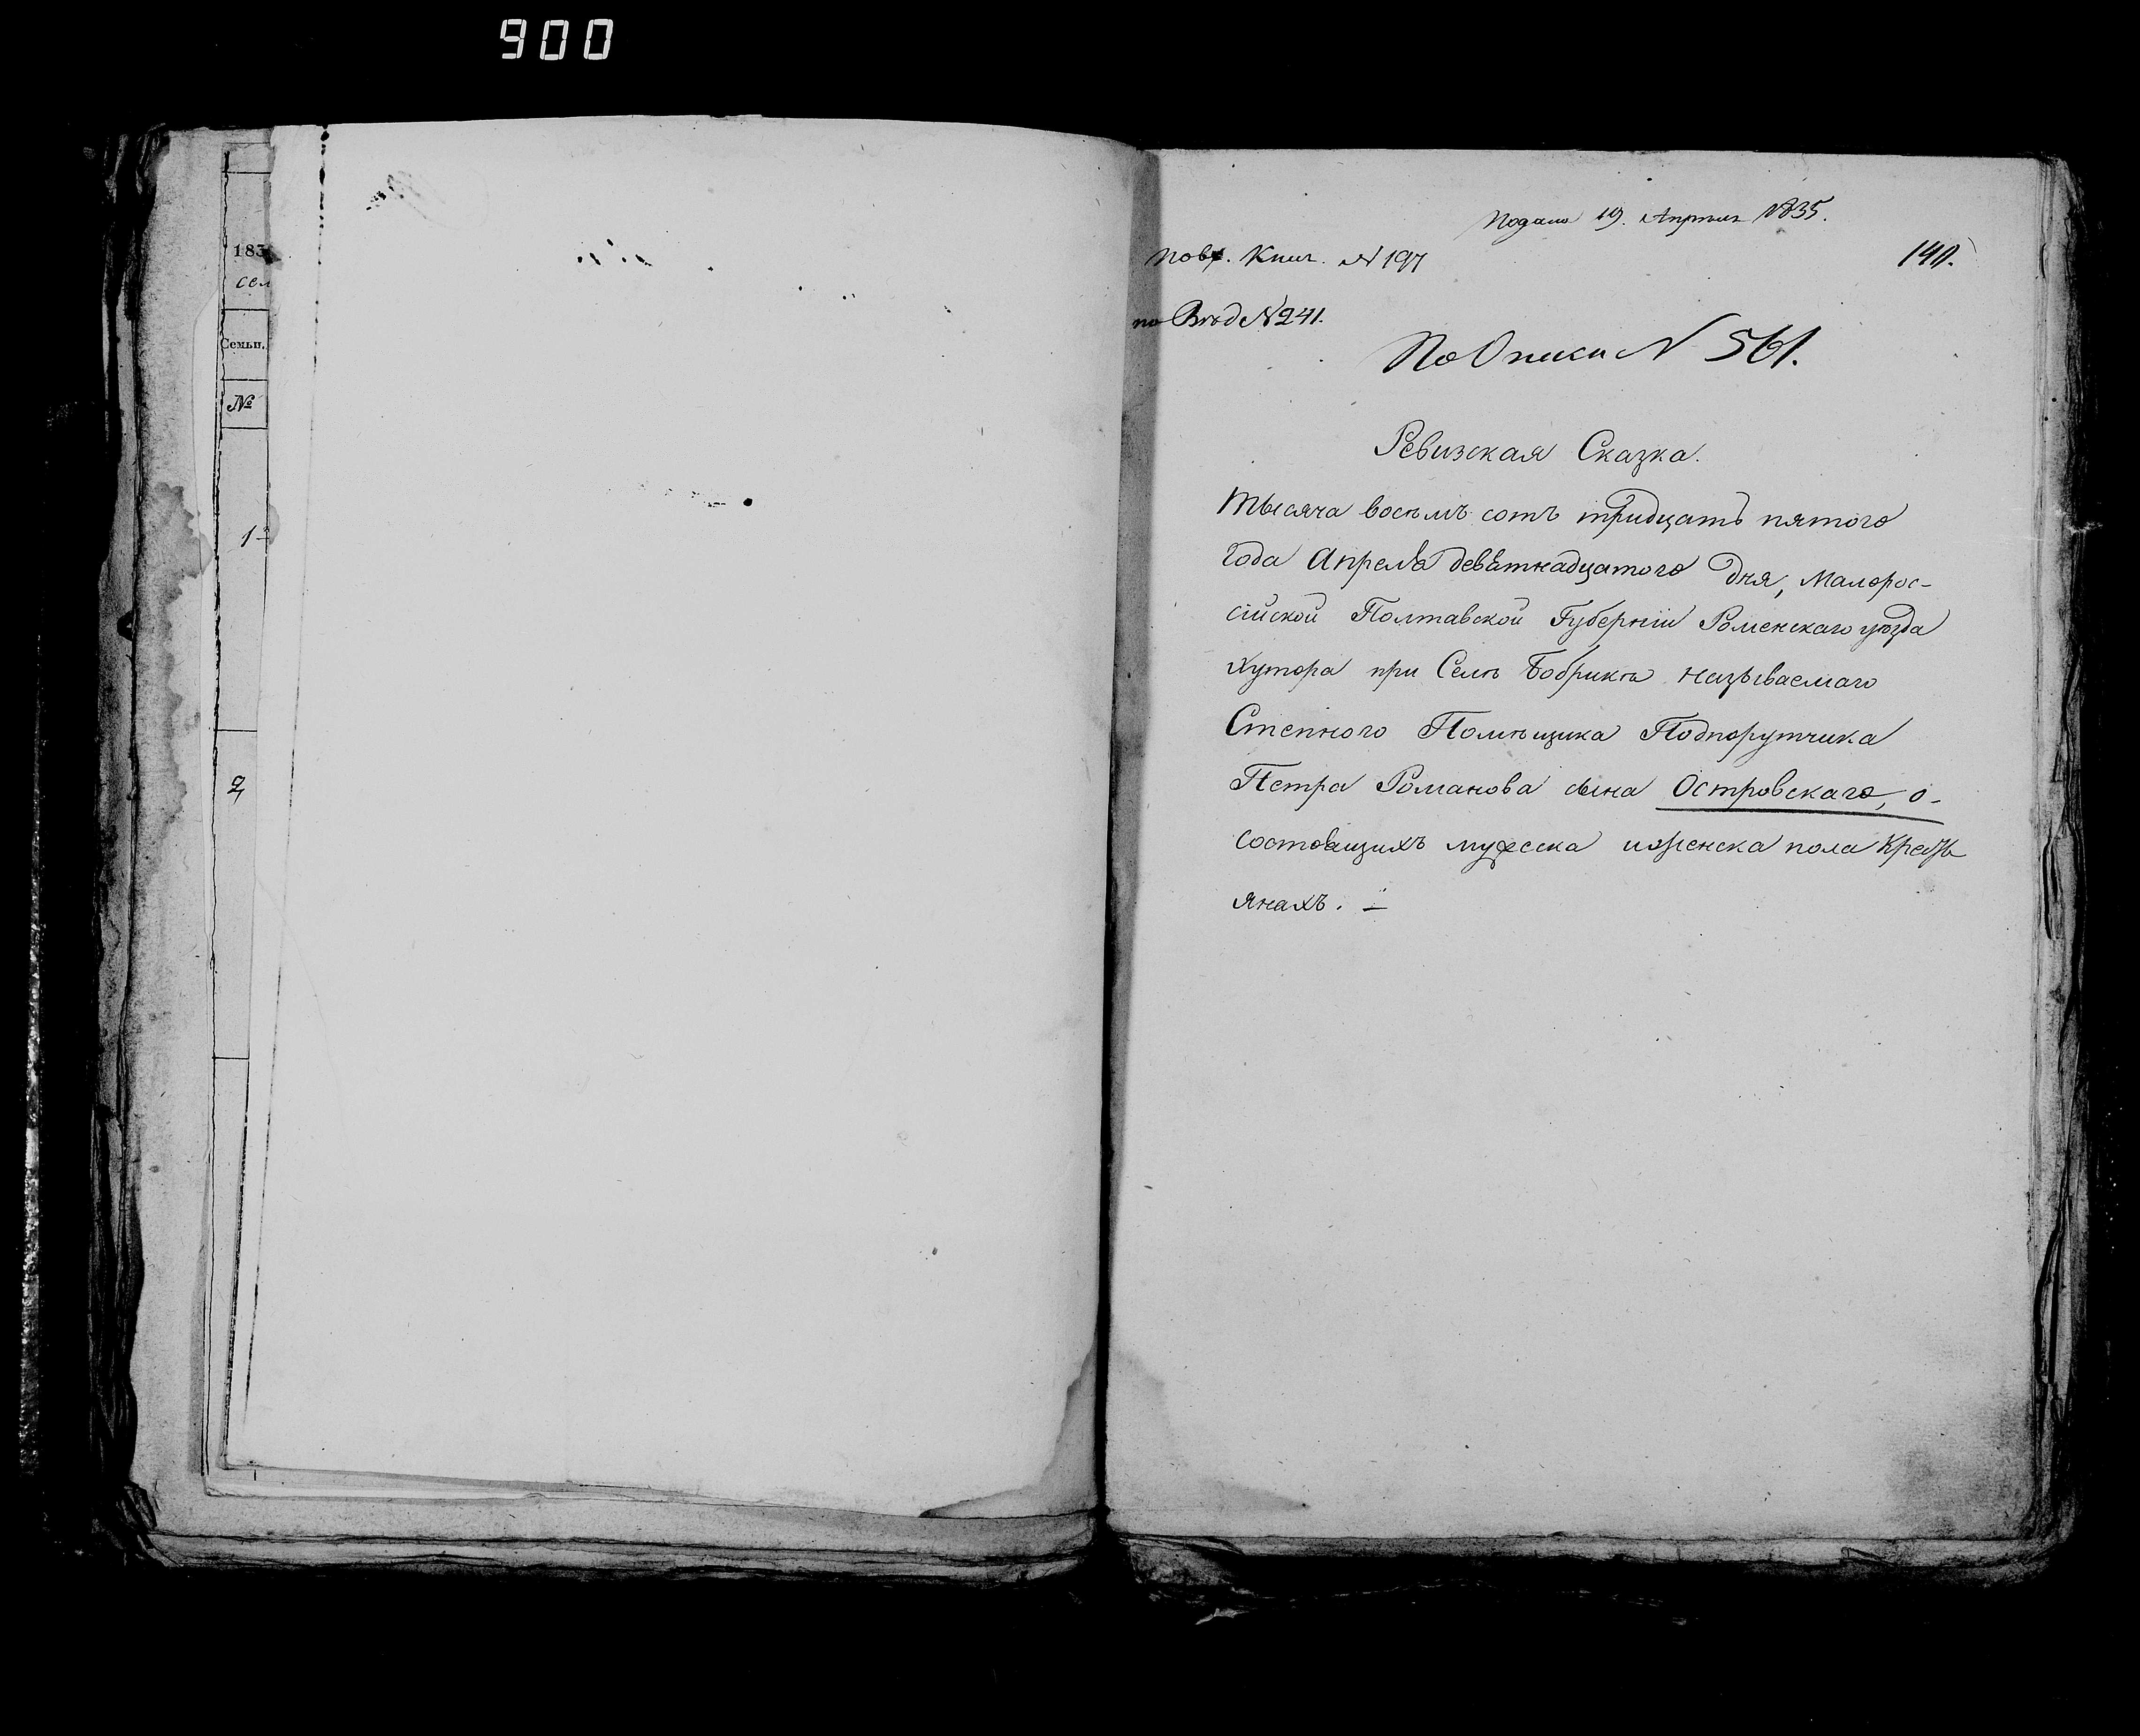 900
183
сел
Семьи.
№
1
2
Подана 19. Апреля 1835.
По вх. Книг. № 197
140.
по Вѣд № 241.
По Описи № 561.
Ревизская Сказка.
Тысяча восемъ сотъ тридцать пятого
года Апреля девятнадцатого дня, Малорос-
сійской Полтавской Губерніи Роменского уѣзда
хутора при Селѣ Бобрикѣ называемаго
Степного Помѣщика Подпорутчика
Петра Романова сына Островскаго, о-
состоящихъ мужеска и женска пола Крестья
янахъ. –